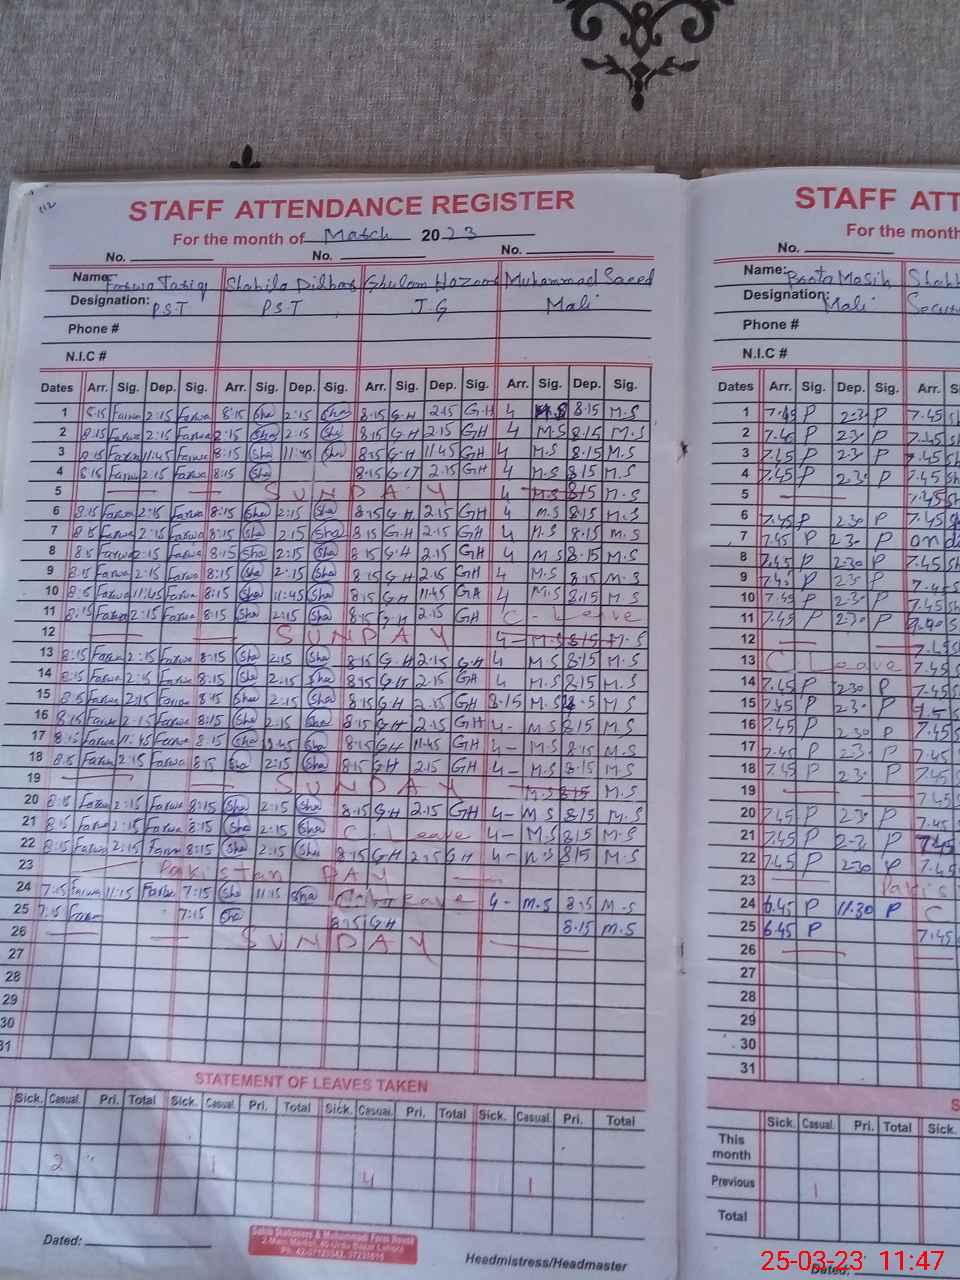 112
STAFF ATTENDANCE REGISTER
For the month of March 2023
No. No. No.
Name: Farwa Tariq Shahila Dilbar Ghulam Muhammad Saeed
Designation: P.S.T P.S.T J.G Mali
Phone #
N.I.C #
Dates Arr. Sig. Dep. Sig. Arr. Sig. Dep. Sig. Arr. Sig. Dep. Sig. Arr. Sig. Dep. Sig.
1 8:15 Farwa 2:15 Farwa 8:15 Sha 2:15 Sha 8:15 G.H 2.15 G.H 4 M.S 8:15 M.S
2 8:15 Farwa 2:15 Farwa 2:15 Sha 2:15 Sha 8:15 G.H 2.15 GH 4 M.S 8:15 M.S
3 8:15 Farwa 11:45 Farwa 8:15 Sha 11:45 Sha 8:15 G.H 11.45 GH 4 M.S 8.15 M.S
4 8:15 Farwa 2:15 Farwa 8:15 Sha 8:15 G.H 2.15 GH 4 M.S 8:15 M.S
5 SUNDAY 4 M.S 8:15 M.S
6 8:15 Farwa 2:15 Farwa 8:15 Sha 2:15 Sha 8:15 G.H 2.15 GH 4 M.S 8:15 M.S
7 8:15 Farwa 2:15 Farwa 8:15 Sha 2:15 Sha 8:15 G.H 2.15 GH 4 M.S 8.15 M.S
8 8:15 Farwa 2:15 Farwa 8:15 Sha 2:15 Sha 8:15 G.H 2.15 GH 4 M S 8.15 M.S
9 8:15 Farwa 2:15 Farwa 8:15 Sha 2:15 Sha 8:15 G.H 2.15 GH 4 M.S 8:15 M.S
10 8:15 Farwa 11:45 Farwa 8:15 Sha 11:45 Sha 8:15 G.H 11.45 GH 4 M.S 8:15 M.S
11 8:15 Farwa 2:15 Farwa 8:15 Sha 2:15 Sha 8:15 G.H 2.15 GH C- Leave
12 SUNDAY 4 M.S 8:15 M.S
13 8:15 Farwa 2:15 Farwa 8:15 Sha 2:15 Sha 8:15 G.H 2.15 G.H 4 M S 8:15 M.S
14 8:15 Farwa 2:15 Farwa 8:15 Sha 2:15 Sha 8:15 G.H 2.15 GH 4 M S 8:15 M.S
15 8:15 Farwa 2:15 Farwa 8:15 Sha 2:15 Sha 8:15 G.H 2.15 GH 8.15 M.S M S
16 8:15 Farwa 2:15 Farwa 8:15 Sha 2:15 Sha 8:15 G.H 2.15 GH 4- M S 8:15 M S
17 8:15 Farwa 11:45 Farwa 8:15 Sha Sha 8:15 GH 11.45 GH 4- M.S 8:15 M.S
18 8:15 Farwa 2:15 Farwa 8:15 Sha 2:15 Sha 8:15 GH 2.15 GH 4- M.S 8.15 M.S
19 SUNDAY M.S 8:15 M.S
20 8:15 Farwa 2:15 Farwa 8:15 Sha 2:15 Sha 8:15 GH 2.15 GH 4- M S 8:15 M.S
21 8:15 Farwa 2:15 Farwa 8:15 Sha 2:15 Sha C. Leave 4- M.S 8:15 M.S
22 8:15 Farwa 2:15 Farwa 8:15 Sha 2:15 Sha 8:15 GH 2:15 GH 4- M.S 8:15 M.S
23 Pakistan DAY
24 7:15 Farwa 11:15 Farwa 7:15 Sha 11:15 Sha C. Leave 4- M.S 8:15 M.S
25 7:15 Farwa 7:15 Sha 8:15 G.H 8.15 M.S
26 SUNDAY
27
28
29
30
31
STATEMENT OF LEAVES TAKEN
Sick. Casual. Pri. Total Sick. Casual. Pri. Total Sick. Casual. Pri. Total Sick. Casual. Pri. Total
2 1 4 1
Dated:
Headmistress/Headmaster
STAFF ATT
For the month
No.
Name: Masih Shah
Designation: Mali Secu
Phone #
N.I.C #
Dates Arr. Sig. Dep. Sig. Arr. S
1 7.45 P 2.30 P 7.45
2 7.45 P 2.30 P 7.45
3 7.45 P 2.30 P 7.45
4 7.45 P 2.30 P 7.45
5 7.45
6 7.45 P 2.30 P 7.45
7 7.45 P 2.30 P on
8 7.45 P 2.30 P 7.45
9 7.45 P 2.30 P
10 7.45 P 2.30 P 7.45
11 7.45 P 2.30 P
12
13 C Leave 7.45
14 7.45 P 2.30 P 7.45
15 7.45 P 2.30 P
16 7.45 P 2.30 P 7.45
17 7.45 P 2.30 P 7.45
18 7.45 P 2.30 P 7.45
19 7.45
20 7.45 P 2.30 P 7.45
21 7.45 P 2.30 P 7.45
22 7.45 P 2.30 P 7.45
23 Pakis
24 6.45 P 11.30 P C
25 6.45 P 7.45
26
27
28
29
30
31
S
Sick. Casual. Pri. Total Sick.
This month
Previous 1
Total
Dated:
25-03-23 11:47